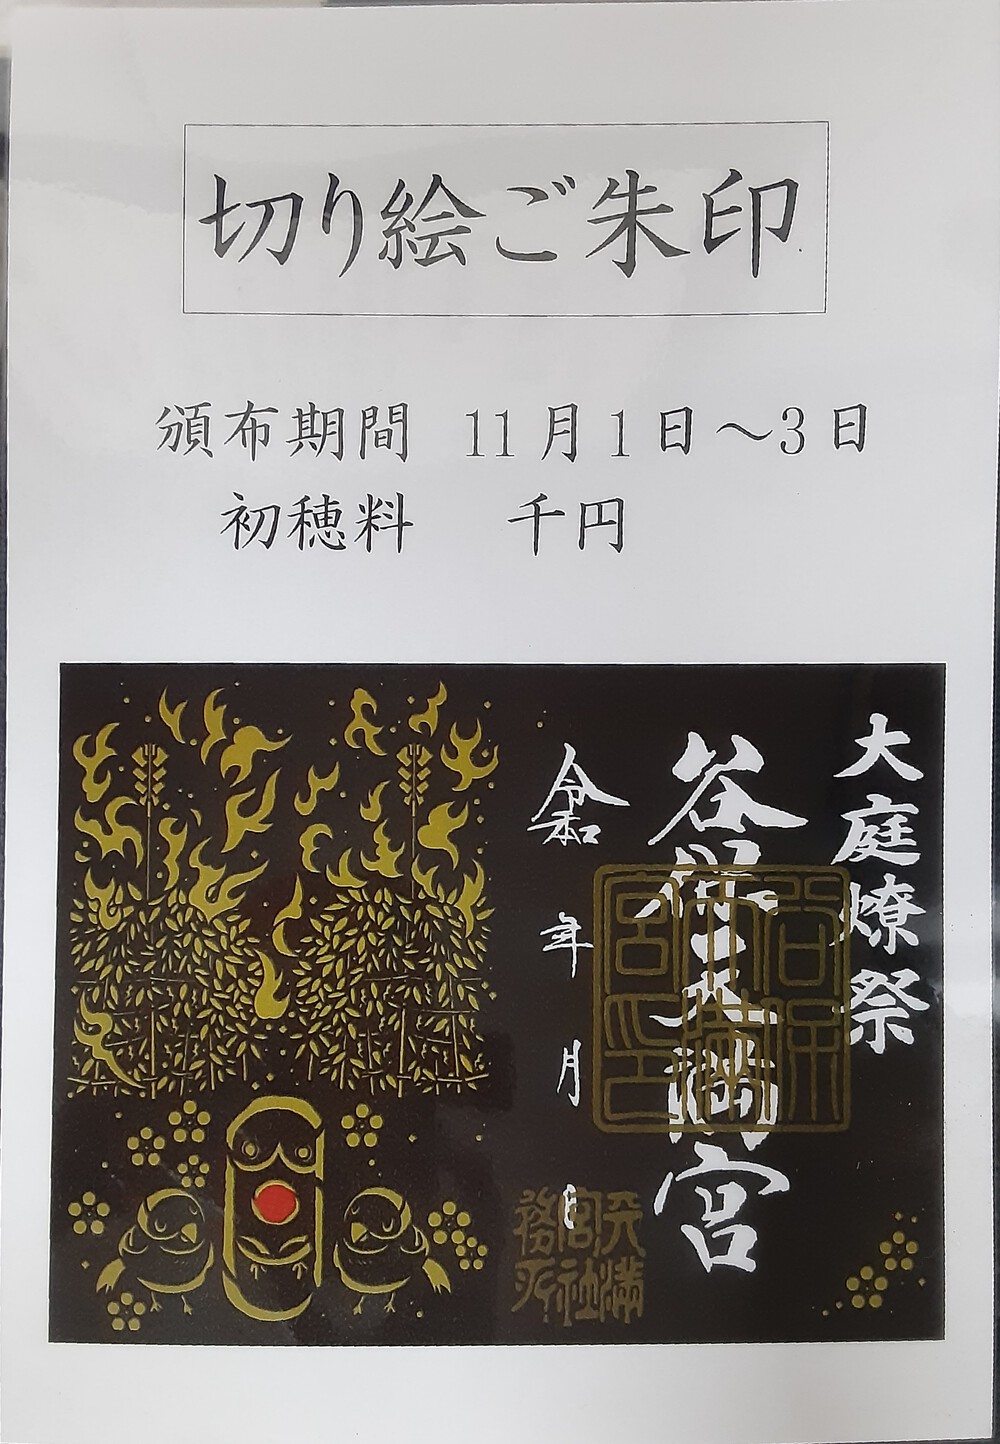 切り絵ご朱印
頒布期間 11月1日～3日
初穂料 千円
大庭燎祭
谷保天満宮
令和 年 月 日
谷保
天満
宮印
天満
宮社
務所